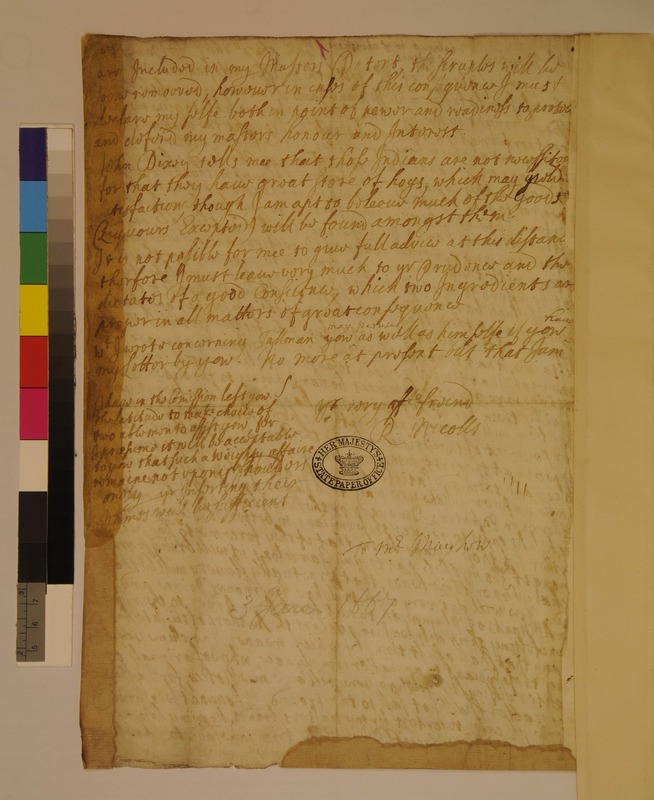 are Included in my Masters Patent, the scruples will be
soone removed, however in cases of this consequence I must
declare my selfe both in point of power and readiness to protect
and defend my masters honour and Interest.
John Dixey tells mee that those Indians are not necessitou
for that they have great store of hogs, which may give
satisfaction though I am apt to beleeve much of the goods
(Liquours Excepted) will be found amongst them
It is not posible for mee to give full advice at this distanc
therfore I must leave very much to yr Prudence and the
dictates of a good Conscience, which two Ingredients ar
proper in all matters of great consequence
wt I wrote concerning Tallman may perswade yow as well as himselfe if yow have
my letter by yow. No more at present but that I am
yr very aff Freind
R Nicolls
I have in the Comission left yow
the latitude to make choice of
two able men to assist yow, for
I presume it will be acceptable
to yow that such a weighty affaire
remaine not upon yr shoulders
only inserting their
names will be sufficient
HER MAJESTY'S
STATE PAPER OFFICE
To Mr Mayhew
3 1667